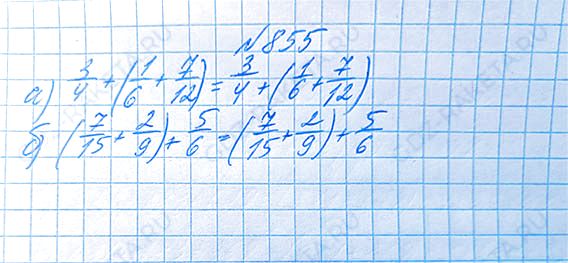 №855
а) 3/4 + (1/6 + 7/12) = 3/4 + (1/6 + 7/12)
б) (7/15 + 2/9) + 5/6 = (7/15 + 2/9) + 5/6